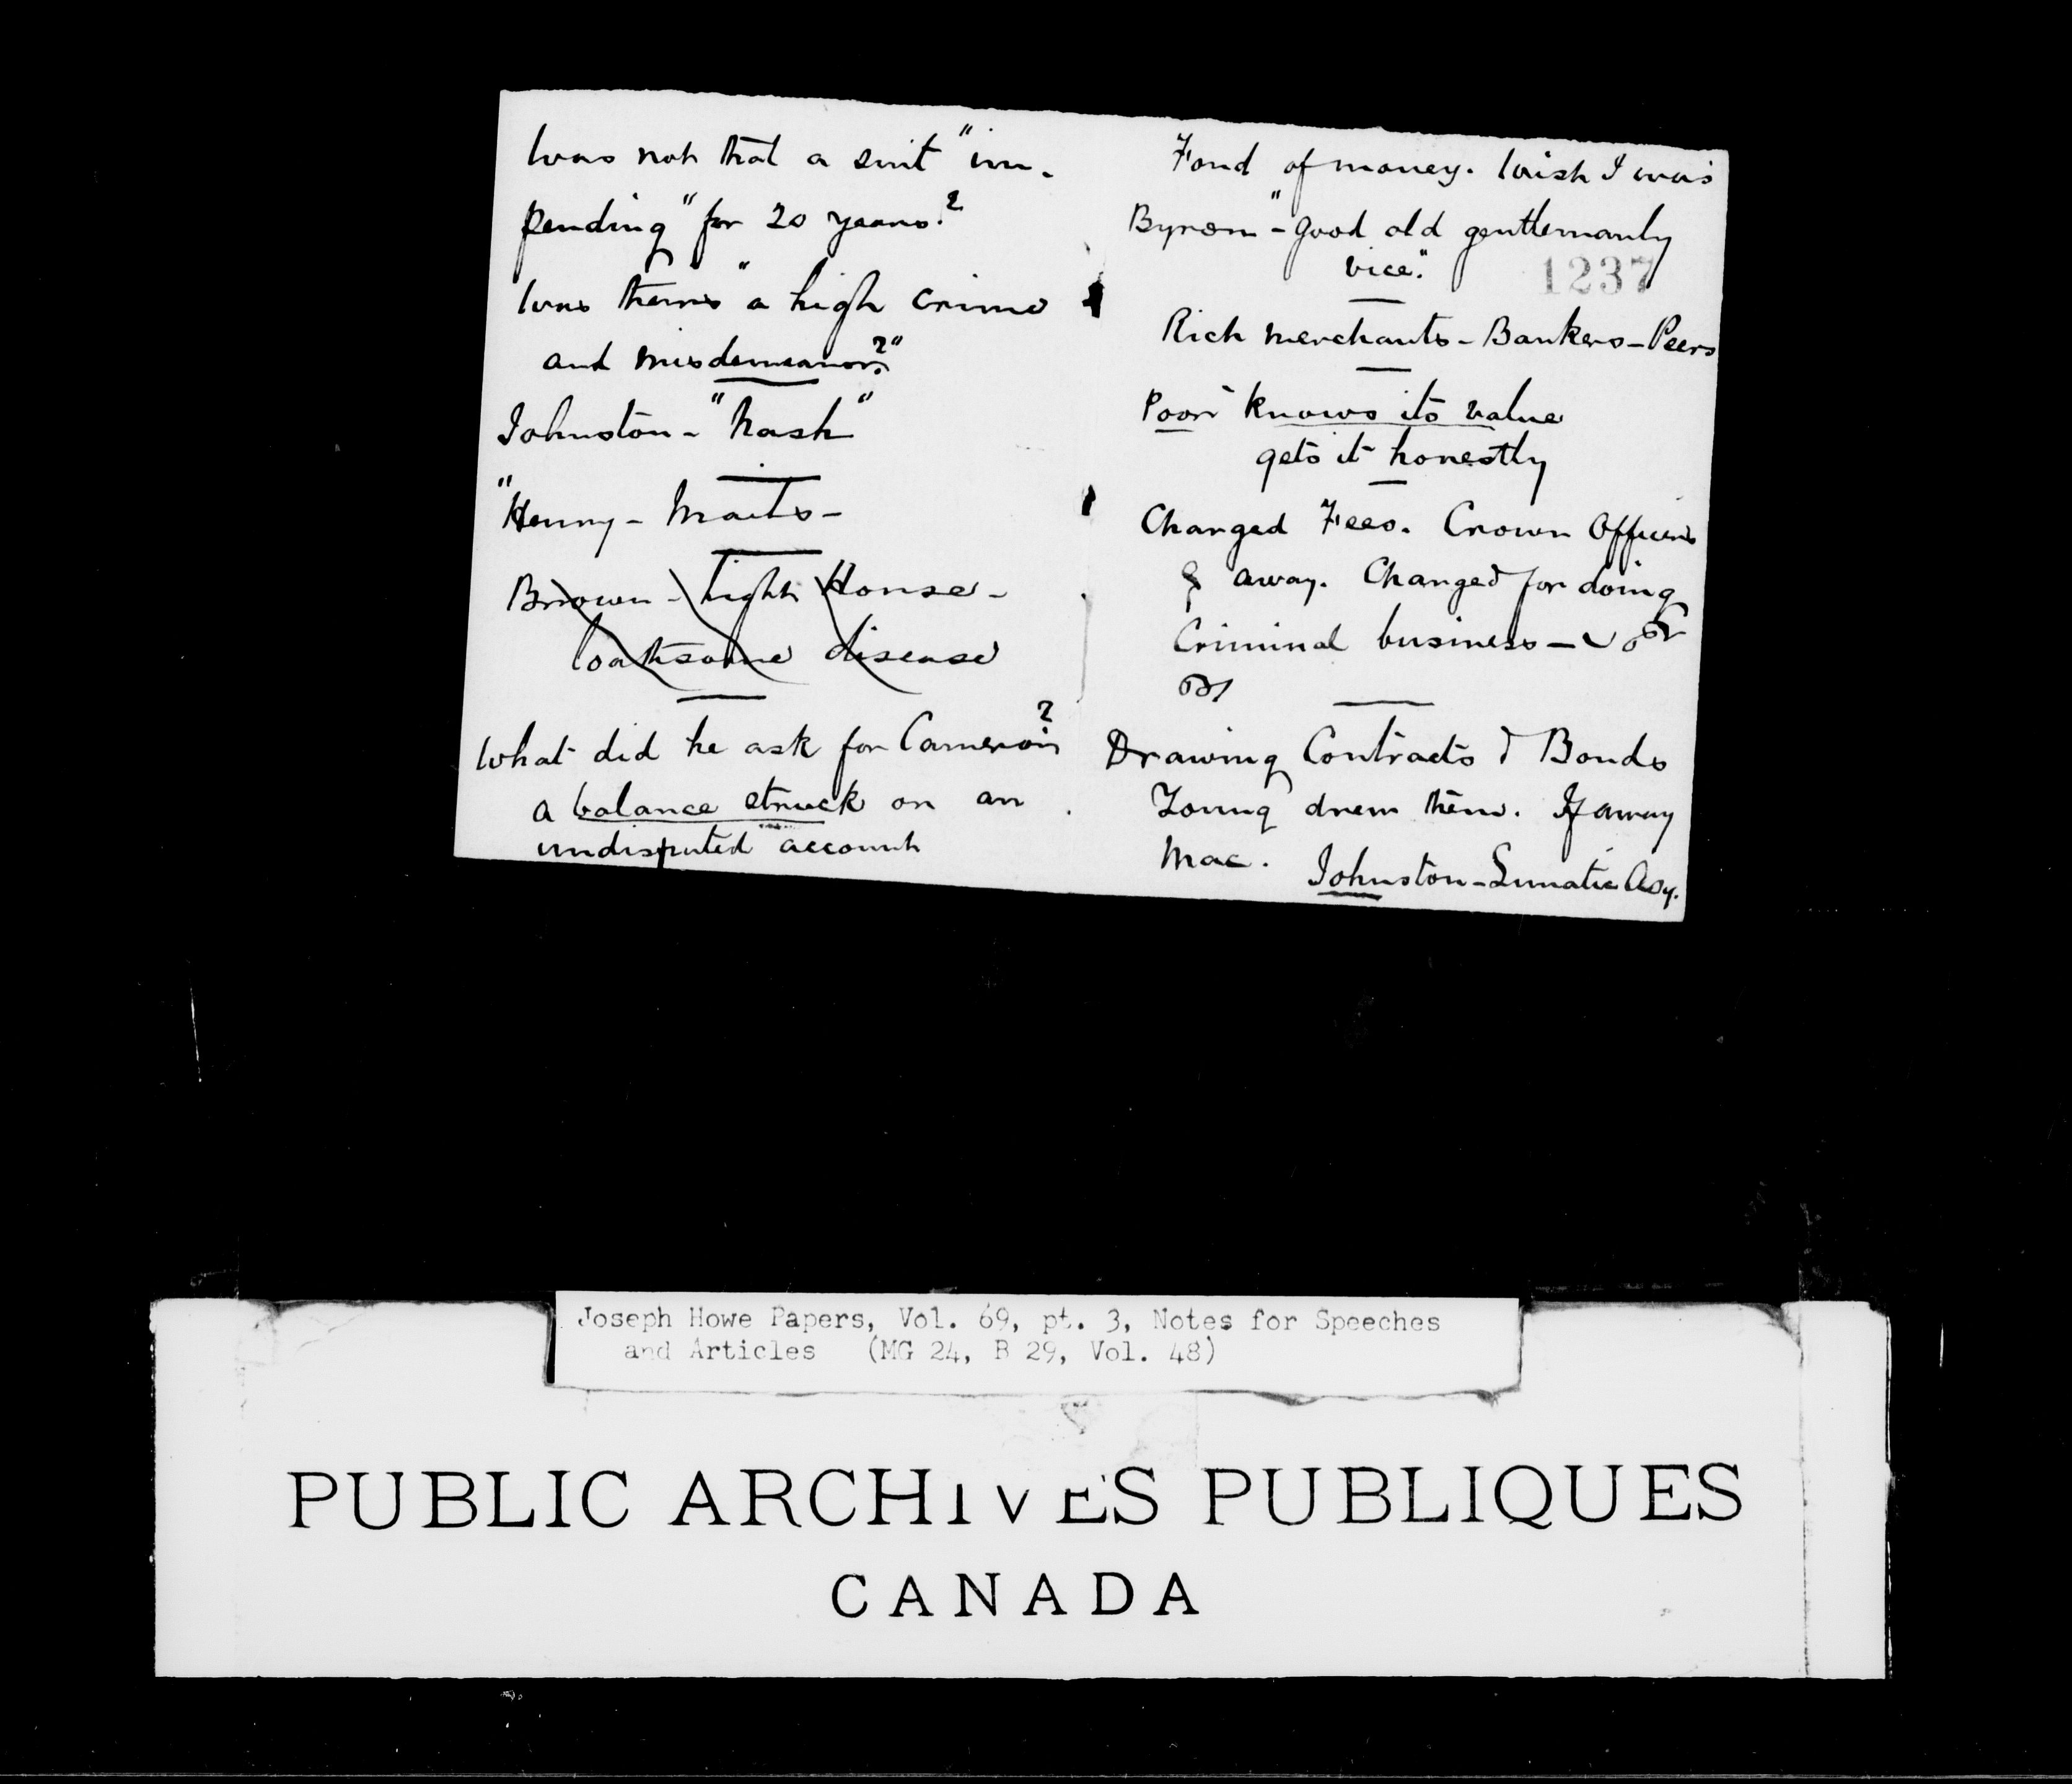 Was not that a suit "im-
pending" for 20 years?
Was theirs "a high crime
and misdemeanor?"
Johnston - "Nash"
"Henry - Maits -
Brown - Light House -
loathsome disease
What did he ask for Cameron?
a balance struck on an
undisputed account
Fond of money. Wish I was
Byron - "good old gentlemanly
vice."
1237
Rich merchants - Bankers - Peers
Poor knows its value
gets it honestly
Charged Fees. Crown Officers
& away. Charged for doing
Criminal business -
Drawing Contracts & Bonds
Young drew them. If away
Mac.
Johnston - Lunatic Asy.
Joseph Howe Papers, Vol. 69, pt. 3, Notes for Speeches
and Articles (MG 24, B 29, Vol. 48)
PUBLIC ARCHIVES PUBLIQUES
CANADA